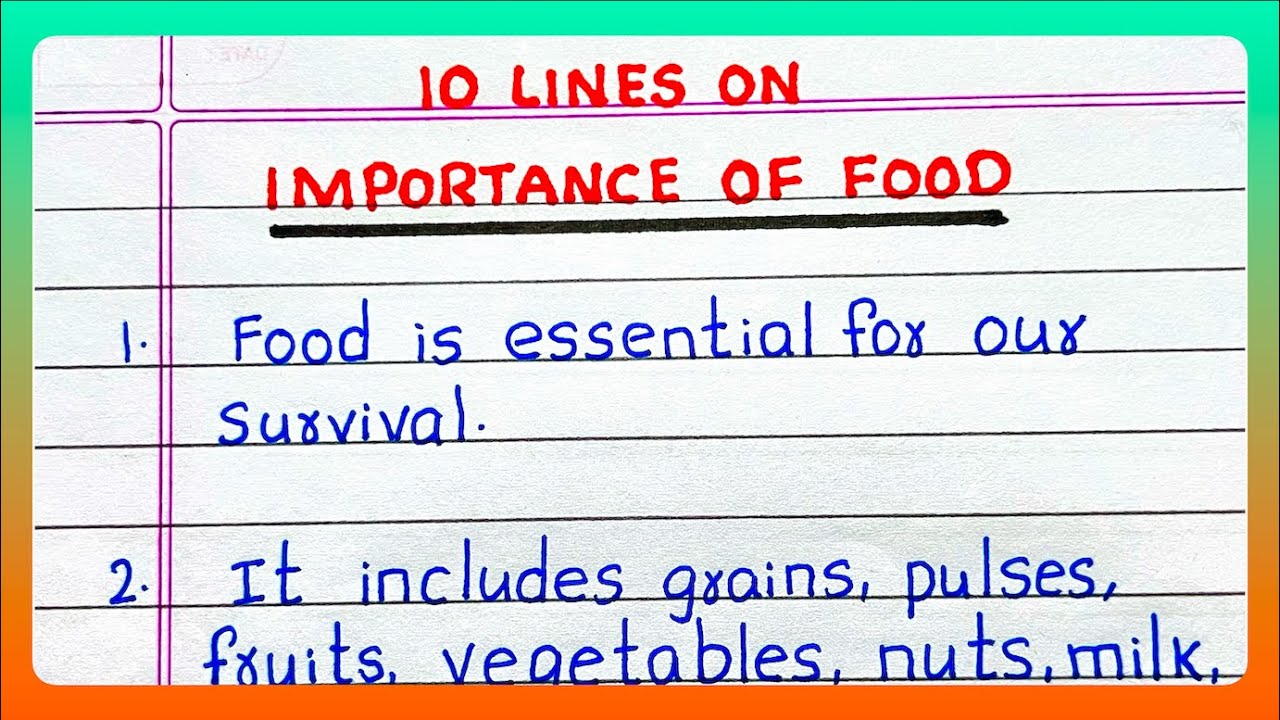 10 LINES ON
IMPORTANCE OF FOOD
1. Food is essential for our
survival.
2. It includes grains, pulses,
fruits, vegetables, nuts, milk,